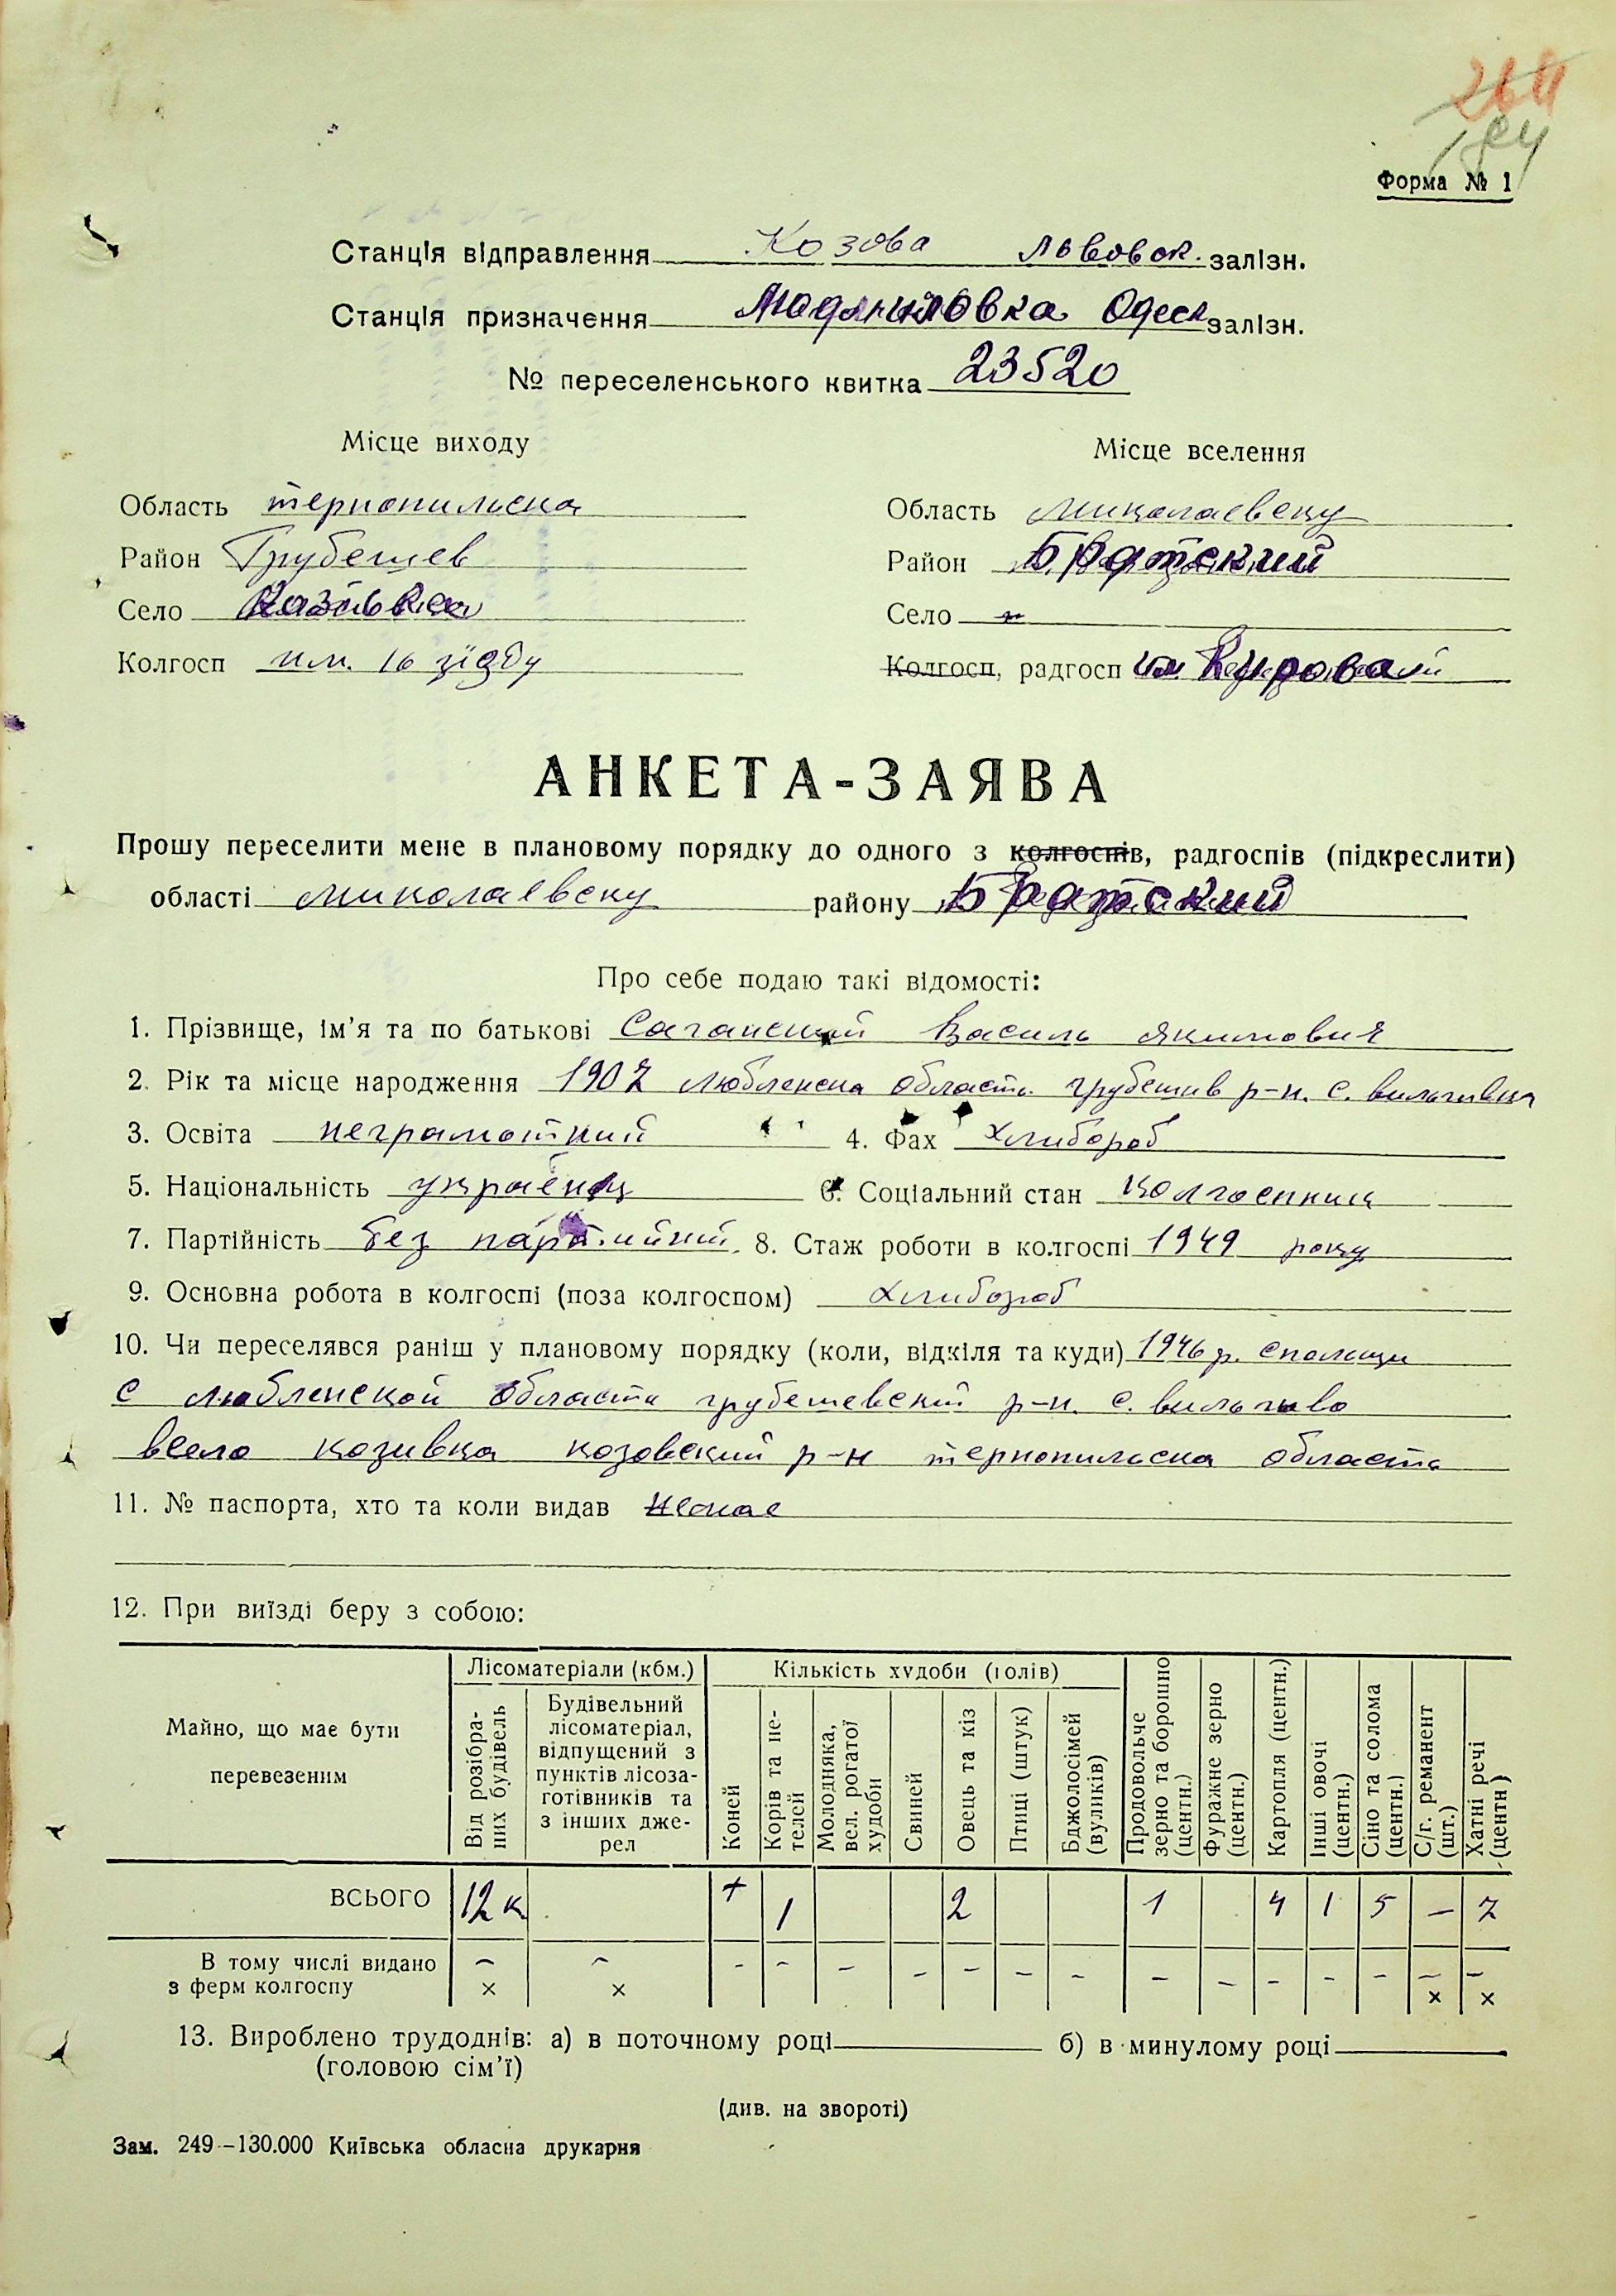 264
184
Форма № 1
Станція відправлення Козова Львовск. залізн.
Станція призначення Одеск залізн.
№ переселенського квитка 23520
Місце виходу
Місце вселення
Область тернопильска
Область миколаевску
Район Грубешев
Район Братский
Село Казивка
Село
Колгосп им. 16 зїзду
Колгосп, радгосп им Кирова
АНКЕТА-ЗАЯВА
Прошу переселити мене в плановому порядку до одного з колгоспів, радгоспів (підкреслити)
області миколаевску району Братский
Про себе подаю такі відомості:
1. Прізвище, ім’я та по батькові Саганский Василь Якимович
2. Рік та місце народження 1907 Люблинска область грубешив р-н. с.
3. Освіта неграмотний 4. Фах хлибороб
5. Національність украенец 6. Соціальний стан колгоспник
7. Партійність без партийний 8. Стаж роботи в колгоспі 1949 року
9. Основна робота в колгоспі (поза колгоспом) хлибороб
10. Чи переселявся раніш у плановому порядку (коли, відкіля та куди) 1946 р. сполщи
с Люблинской области грубешевский р-н. с.
всело козивка козовский р-н тернопильска область
11. № паспорта, хто та коли видав немае
12. При виїзді беру з собою:
Майно, що має бути перевезеним
Лісоматеріали (кбм.)
Від розібраних будівель
Будівельний лісоматеріал, відпущений з пунктів лісозаготівників та з інших джерел
Кількість худоби (голів)
Коней
Корів та нетелей
Молодняка, вел. рогатої худоби
Свиней
Овець та кіз
Птиці (штук)
Бджолосімей (вуликів)
Продовольче зерно та борошно (центн.)
Фуражне зерно (центн.)
Картопля (центн.)
Інші овочі (центн.)
Сіно та солома (центн.)
С/г. реманент (шт.)
Хатні речі (центн)
ВСЬОГО 12 к. + 1 2 1 4 1 5 — 7
В тому числі видано з ферм колгоспу – × – × – – – – – – – – – – – – – × – ×
13. Вироблено трудоднів: а) в поточному році б) в минулому році
(головою сім’ї)
(див. на звороті)
Зам. 249–130.000 Київська обласна друкарня